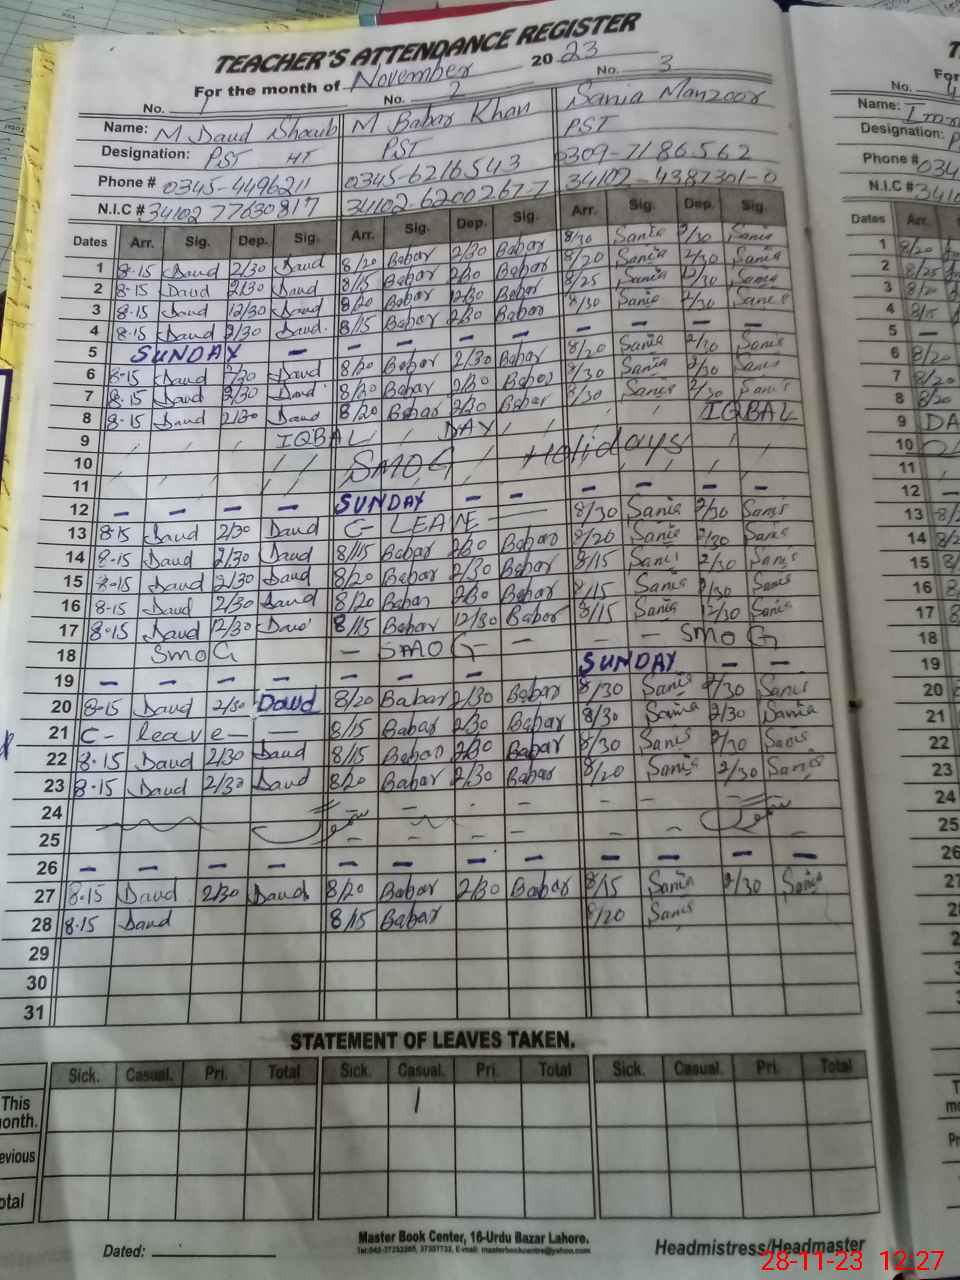 TEACHER'S ATTENDANCE REGISTER
For the month of November 2023
No. 1 No. 2 No. 3
Name: M Daud Shoaib M Babar Khan Sania Manzoor
Designation: PST HT PST PST
Phone # 0345-4496211 0345-6216543 0309-7186562
N.I.C # 34102 77630817 34102-6200267-7 34102-4387301-0
Dates Arr. Sig. Dep. Sig. Arr. Sig. Dep. Sig. Arr. Sig. Dep. Sig.
1 8-15 Daud 2/30 Daud 8/20 Babar 2/30 Babar 8/30 Sania 2/30 Sania
2 8-15 Daud 2/30 Daud 8/15 Babar 2/30 Babar 8/20 Sania 2/30 Sania
3 8-15 Daud 12/30 Daud 8/20 Babar 12/30 Babar 8/25 Sania 12/30 Sania
4 8-15 Daud 2/30 Daud 8/15 Babar 2/30 Babar 8/30 Sania 2/30 Sania
5 SUNDAY — — — — — — — — —
6 8-15 Daud 2/30 Daud 8/20 Babar 2/30 Babar 8/20 Sania 2/30 Sania
7 8-15 Daud 2/30 Daud 8/20 Babar 2/30 Babar 8/30 Sania 2/30 Sania
8 8-15 Daud 2/30 Daud 8/20 Babar 2/30 Babar 8/30 Sania 2/30 Sania
9 IQBAL DAY IQBAL
10 SMOG Holidays
11
12 — — — — SUNDAY — — — — — —
13 8-15 Daud 2/30 Daud C- LEAVE 8/30 Sania 2/30 Sania
14 8-15 Daud 2/30 Daud 8/15 Babar 2/30 Babar 8/20 Sania 2/30 Sania
15 8-15 Daud 2/30 Daud 8/20 Babar 2/30 Babar 8/15 Sania 2/30 Sania
16 8-15 Daud 2/30 Daud 8/20 Babar 2/30 Babar 8/15 Sania 2/30 Sania
17 8-15 Daud 12/30 Daud 8/15 Babar 12/30 Babar 8/15 Sania 12/30 Sania
18 SMOG — SMOG — — — — SMOG
19 — — — — — — — — SUNDAY — —
20 8-15 Daud 2/30 Daud 8/20 Babar 2/30 Babar 8/30 Sania 2/30 Sania
21 C- leave — — 8/15 Babar 2/30 Babar 8/30 Sania 2/30 Sania
22 8-15 Daud 2/30 Daud 8/15 Babar 2/30 Babar 8/30 Sania 2/30 Sania
23 8-15 Daud 2/30 Daud 8/20 Babar 2/30 Babar 8/20 Sania 2/30 Sania
24
25
26 — — — — — — — — — — — —
27 8-15 Daud 2/30 Daud 8/20 Babar 2/30 Babar 8/15 Sania 2/30 Sania
28 8-15 Daud 8/15 Babar 8/20 Sania
29
30
31
STATEMENT OF LEAVES TAKEN.
Sick. Casual. Pri. Total Sick. Casual. Pri. Total Sick. Casual. Pri. Total
This
onth. 1
evious
otal
Dated:
Master Book Center, 16-Urdu Bazar Lahore.
Headmistress/Headmaster
No. 4
Name:
Designation:
Phone # 034
N.I.C # 3410
Dates Arr.
1 8/20
2 8/25
3 8/20
4 8/15
5 —
6 8/20
7 8/20
8 8/20
9 DA
10
11
12 —
13
14
15
16
17
18
19
20
21
22
23
24
25
26
27
28-11-23 12:27